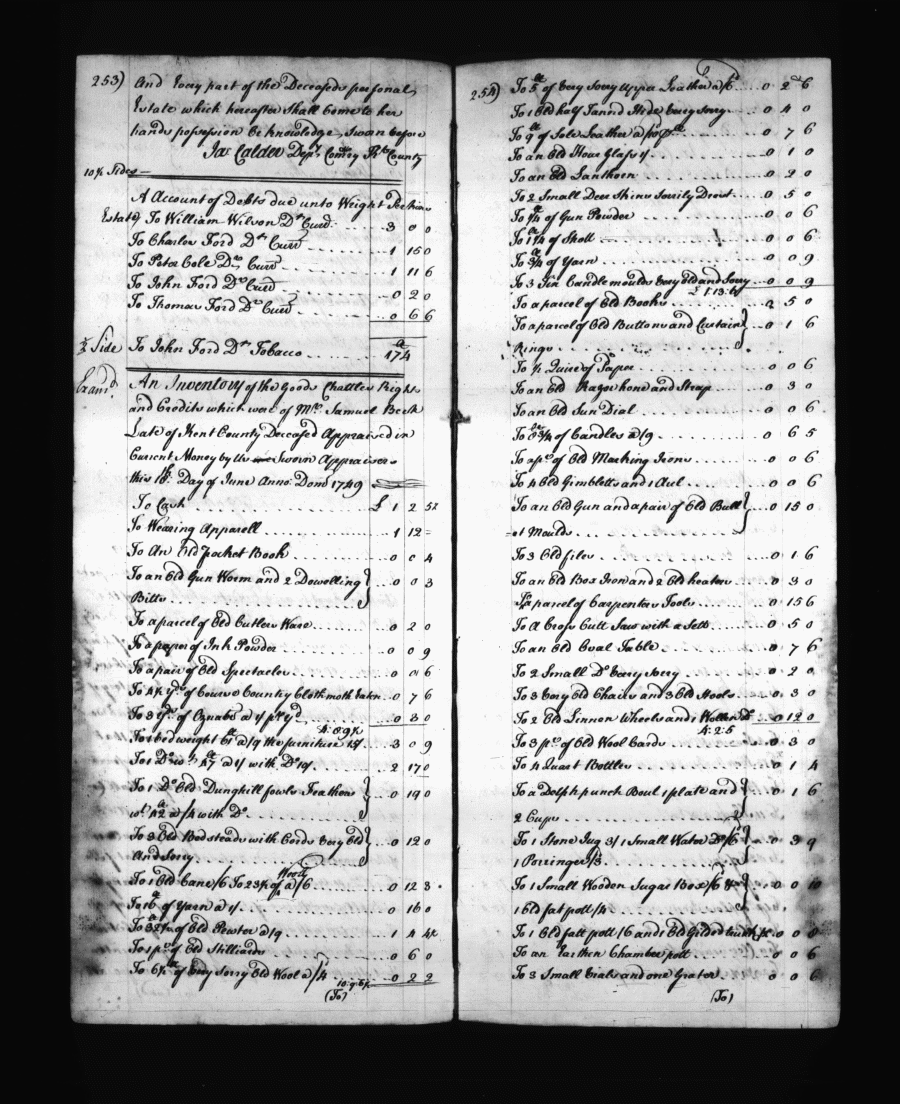 253)
And Every part of the Deceaseds personal
Estate which hereafter Shall Come to her
hands possession or knowledge, Sworn before
Jas Calder Depty Comry Kt County
10½ Sides
A Account of Debts due unto Weight
Estate) To William Wilson Dr Curr ... 3 0 0
To Charles Ford Dr Curr ... 1 15 0
To Peter Cole Dr Curr ... 1 11 6
To John Ford Dr Curr ... 0 2 0
To Thomas Ford Dr Curr ... 0 6 6
½ Side To John Ford Dr Tobacco ... 174
Examd
An Inventory of the Goods Chattles Rights
and Credits which were of Mr Samuel Beck
Late of Kent County Deceased Appraised in
Current Money by Us Sworn Appraisers
this 18th Day of June Anno Dom 1749
To Cash ... £ 1 2 5½
To Wearing Apparell ... 1 12 =
To An Old Pocket Book ... 0 0 4
To an Old Gun Worm and 2 Dowelling } ... 0 0 3
Bitts
To a parcel of Old Cutlers Ware ... 0 2 0
To a paper of Ink Powder ... 0 0 9
To a pair of Old Spectacles ... 0 0 6
To 4½ yds of Course Country Cloth moth Eaten ... 0 7 6
To 3 yds of Oznabs a 1/ pr yd ... 0 3 0
4:8:9½
To 1 bed weight a /9 the furniture ... 3 0 9
To 1 Do wt 47 a 1/ with Do 10/ ... 2 17 0
To 1 Do Old Dunghill fowls Feathers } ... 0 19 0
wt 42 a /4 with Do
To 3 Old Bedsteads with Cords Very Old } ... 0 12 0
And Sorry
To 1 Old Cane /6 To 23½ of Wool a /6 ... 0 12 3
To 16 of Yarn a 1/ ... 0 16 0
To 32½ of Old Pewter a /9 ... 1 4 4½
To 1 pr of Old Stilliards ... 0 6 0
To 6½ of Very Sorry Old Wool a /4 ... 0 2 2
10:9:6½
(To)
254)
To 5 of Very Sorry Upper Leather a /6 ... 0 2 6
To 1 Old half Tannd Hide Very Sorry ... 0 4 0
To 9 of Sole Leather a /10 ... 0 7 6
To an Old Hour Glass 1/ ... 0 1 0
To an Old Lanthorn ... 0 2 0
To 2 Small Deer Skins Sorrily Drest ... 0 5 0
To ¼ of Gun Powder ... 0 0 6
To 1¼ of Shott ... 0 0 6
To ¾ of Yarn ... 0 0 9
To 3 Tin Candle moulds Very Old and Sorry ... 0 0 9
To a parcel of Old Books ... 2 5 0
To a parcel of Old Buttons and Curtain } ... 0 1 6
Rings
To ½ Quire of Paper ... 0 0 6
To an Old Razor hone and Strap ... 0 3 0
To an Old Sun Dial ... 0 0 6
To 8¾ of Candles a /9 ... 0 6 5
To a pr of Old Marking Irons ... 0 0 6
To 4 Old Gimbletts and 1 Aul ... 0 0 6
To an Old Gun and a pair of Old Bull } ... 0 15 0
=et Moulds
To 3 Old files ... 0 1 6
To an Old Box Iron and 2 Old heaters ... 0 3 0
To a parcel of Carpenters Tools ... 0 15 6
To A Cross Cutt Saw with a Sett ... 0 5 0
To an Old Oval Table ... 0 7 6
To 2 Small Do Very Sorry ... 0 2 0
To 3 Very Old Chairs and 3 Old Stools ... 0 3 0
To 2 Old Linnen Wheels and 1 Wollen Do ... 0 12 0
4:2:5
To 3 pr of Old Wool Cards ... 0 3 0
To 4 Quart Bottles ... 0 1 4
To a Delph punch Boul 1 plate and } ... 0 1 6
2 Cups
To 1 Stone Jug 3/ 1 Small Water Do /6 } ... 0 3 9
1 Porringer /3
To 1 Small Wooden Sugar Box /6 } ... 0 0 10
1 Old fat pott /4
To 1 Old fatt pott /6 and 1 Old Gilded ... 0 0 8
To an Earthen Chamber pott ... 0 0 6
To 3 Small Vials and one Grater ... 0 0 6
(To)